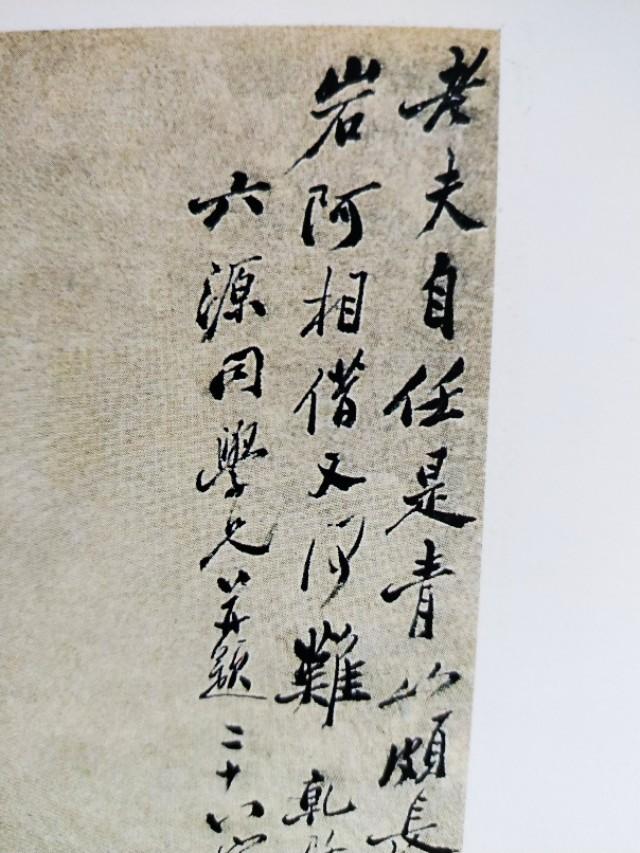 老夫自任是青山頗長
岩阿相借又何難 乾
六源同學兄 並題 二十八